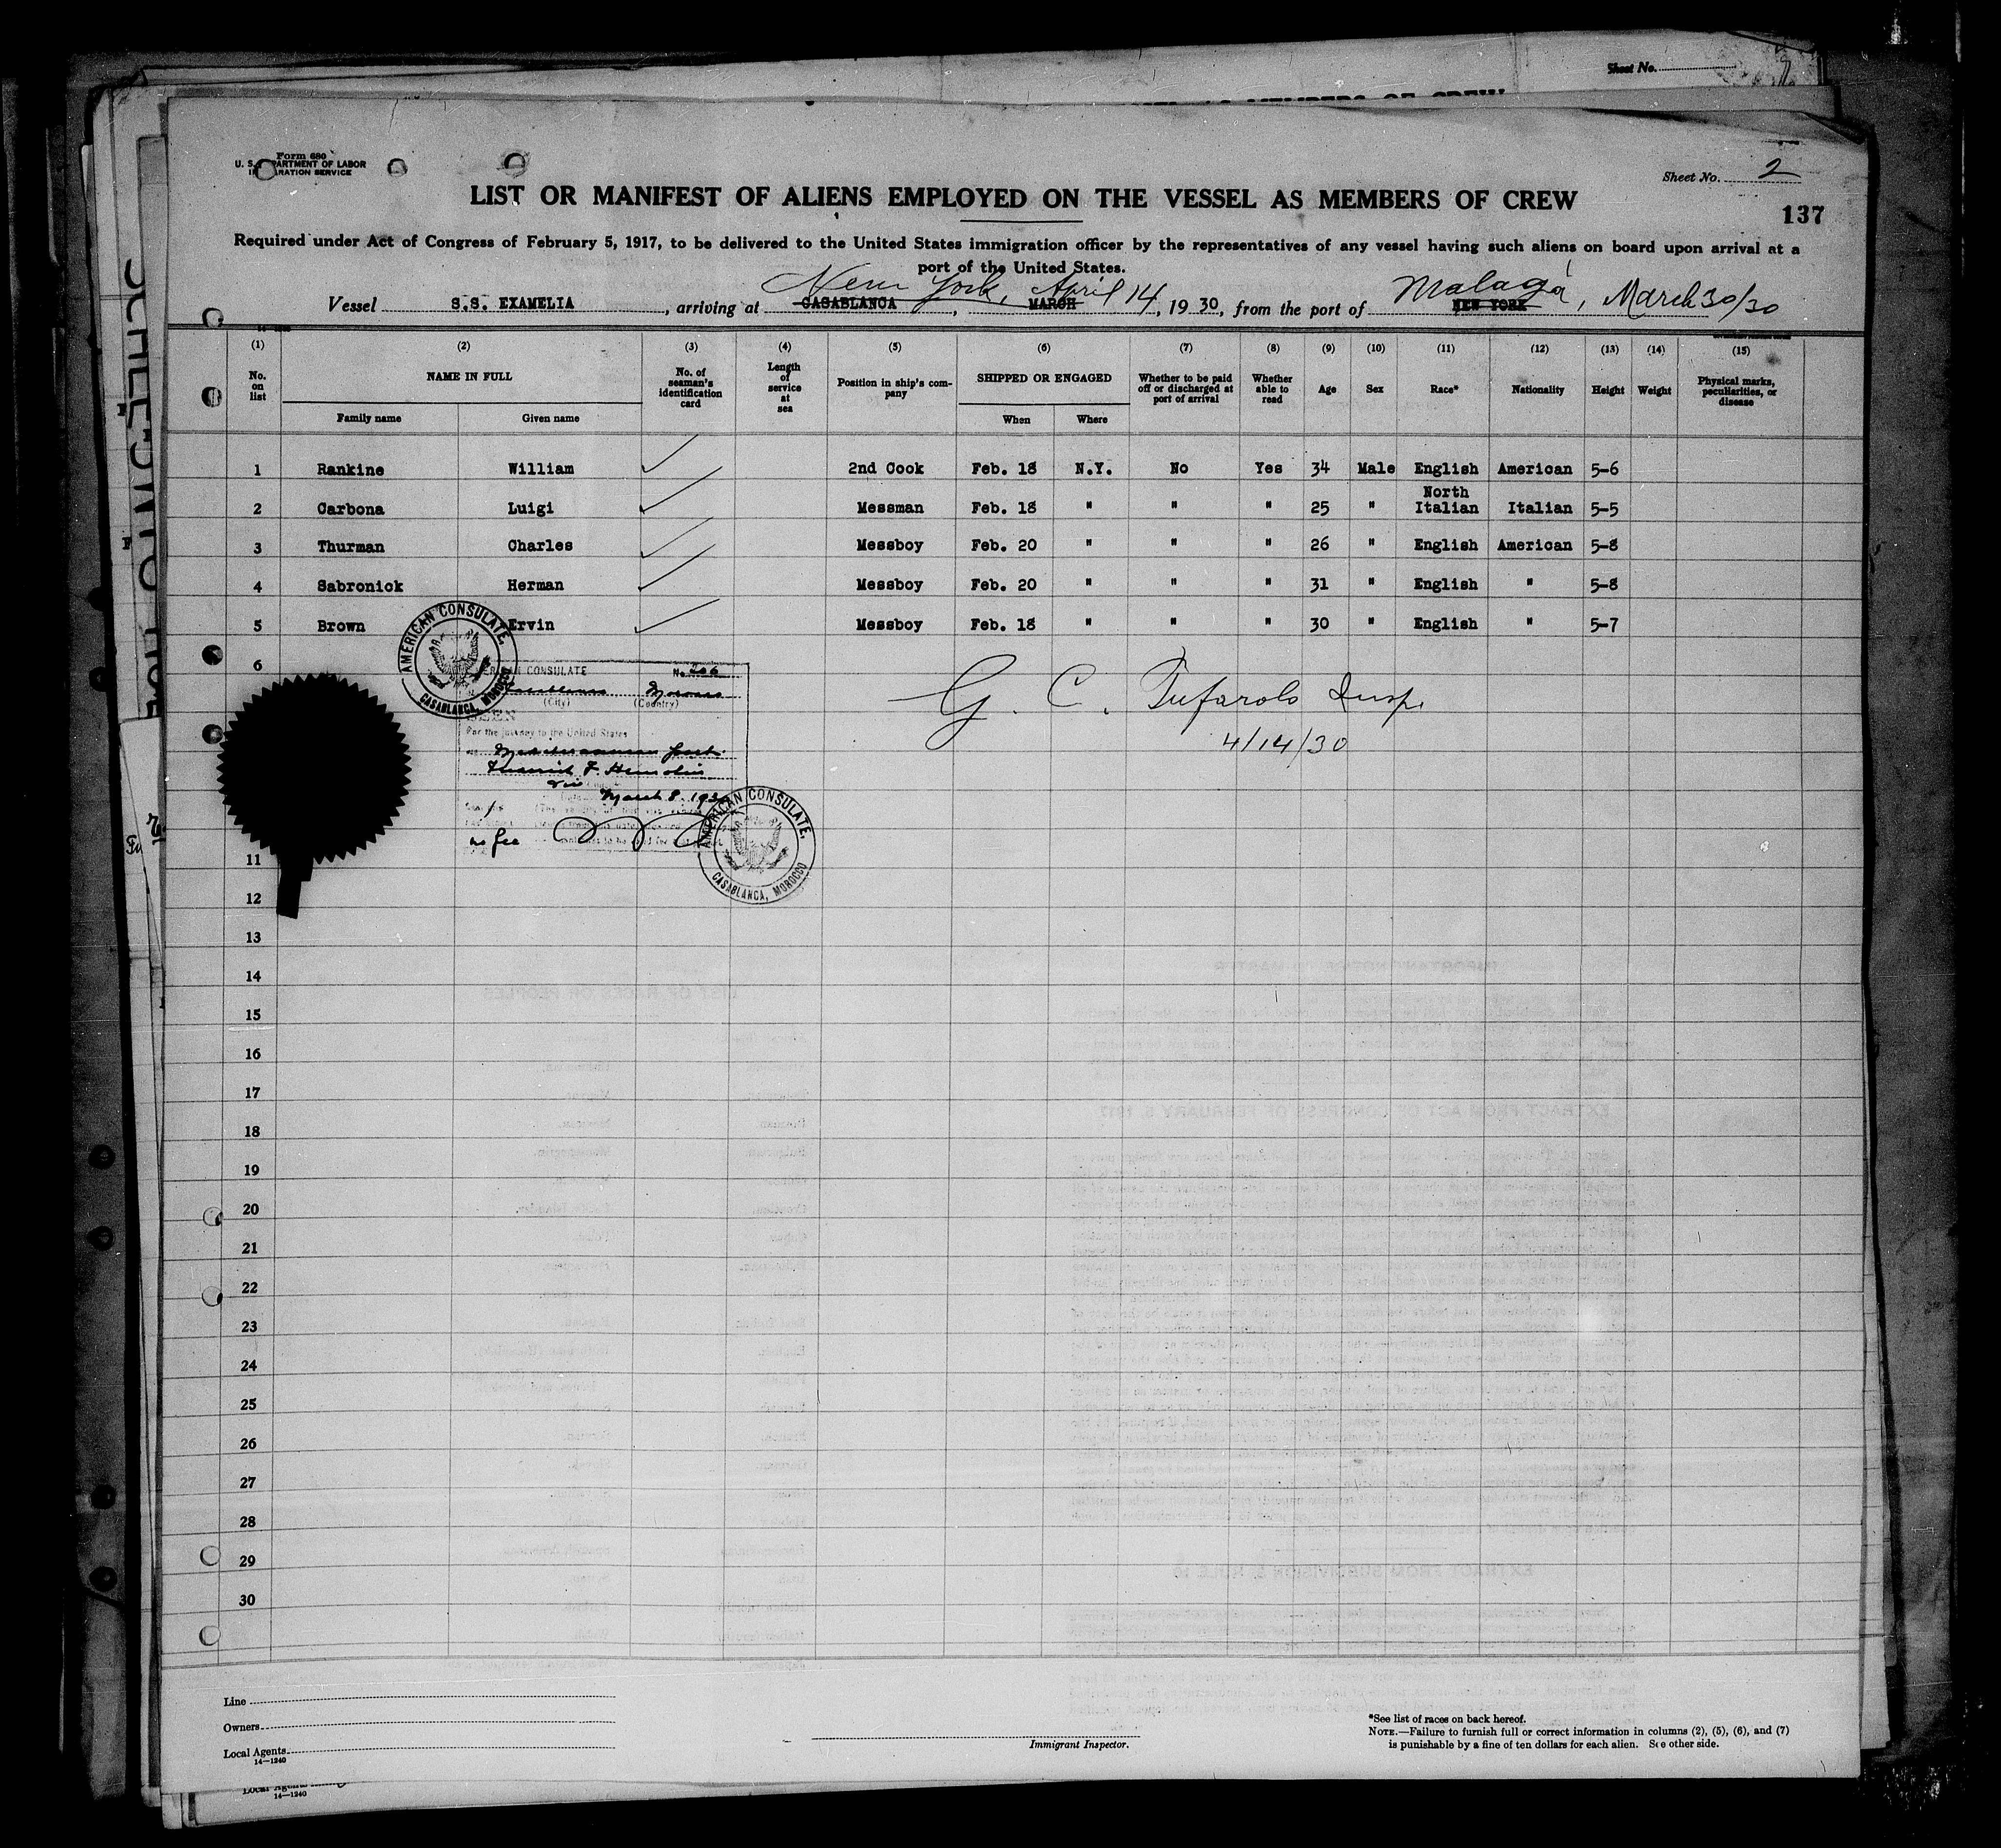 Sheet No.
Form 680
U. S. DEPARTMENT OF LABOR
IMMIGRATION SERVICE
Sheet No. 2
LIST OR MANIFEST OF ALIENS EMPLOYED ON THE VESSEL AS MEMBERS OF CREW
137
Required under Act of Congress of February 5, 1917, to be delivered to the United States immigration officer by the representatives of any vessel having such aliens on board upon arrival at a
port of the United States.
New York, April 14 Malaga, March 30/30
Vessel S.S. EXAMELIA, arriving at CASABLANCA, MARCH, 1930, from the port of NEW YORK
(1) (2) (3) (4) (5) (6) (7) (8) (9) (10) (11) (12) (13) (14) (15)
No. on list NAME IN FULL No. of seaman's identification card Length of service at sea Position in ship's company SHIPPED OR ENGAGED Whether to be paid off or discharged at port of arrival Whether able to read Age Sex Race* Nationality Height Weight Physical marks, peculiarities, or disease
Family name Given name When Where
1 Rankine William 2nd Cook Feb. 18 N.Y. No Yes 34 Male English American 5-6
2 Carbona Luigi Messman Feb. 18 " " " 25 " North Italian Italian 5-5
3 Thurman Charles Messboy Feb. 20 " " " 26 " English American 5-8
4 Sabronick Herman Messboy Feb. 20 " " " 31 " English " 5-8
5 Brown Ervin Messboy Feb. 18 " " " 30 " English " 5-7
6
AMERICAN CONSULATE, CASABLANCA, MOROCCO
CONSULATE No. 206
Casablanca Morocco
(City) (Country)
SEEN
For the journey to the United States
March 8, 193
no fee
AMERICAN CONSULATE, CASABLANCA, MOROCCO
G. C. Tufarolo Insp.
4/14/30
11
12
13
14
15
16
17
18
19
20
21
22
23
24
25
26
27
28
29
30
Line
Owners
Local Agents
14—1240
Immigrant Inspector.
*See list of races on back hereof.
NOTE.—Failure to furnish full or correct information in columns (2), (5), (6), and (7)
is punishable by a fine of ten dollars for each alien. See other side.
14—1240